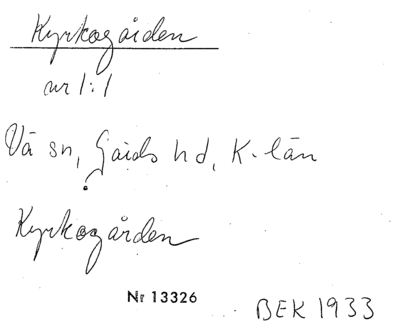 Kyrkogården
nr 1:1
Vä sn, Gärds hd, K-län
Kyrkogården
Nr 13326
BEK 1933